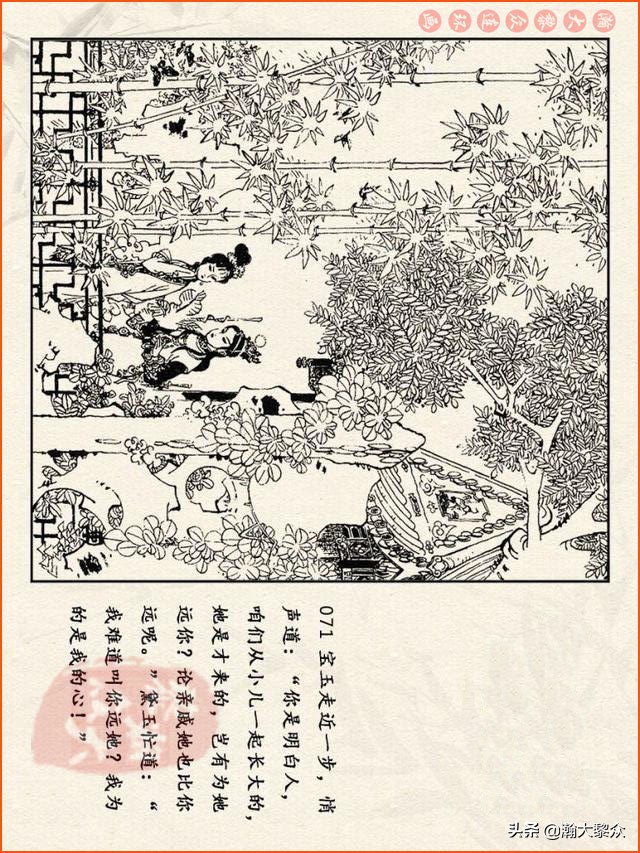 瀚大黎众连环画
071 宝玉走近一步，悄
声道：“你是明白人，
咱们从小儿一起长大的，
她是才来的，岂有为她
远你？论亲戚她也比你
远呢。”黛玉忙道：“
我难道叫你远她？我为
的是我的心！”
头条 @瀚大黎众